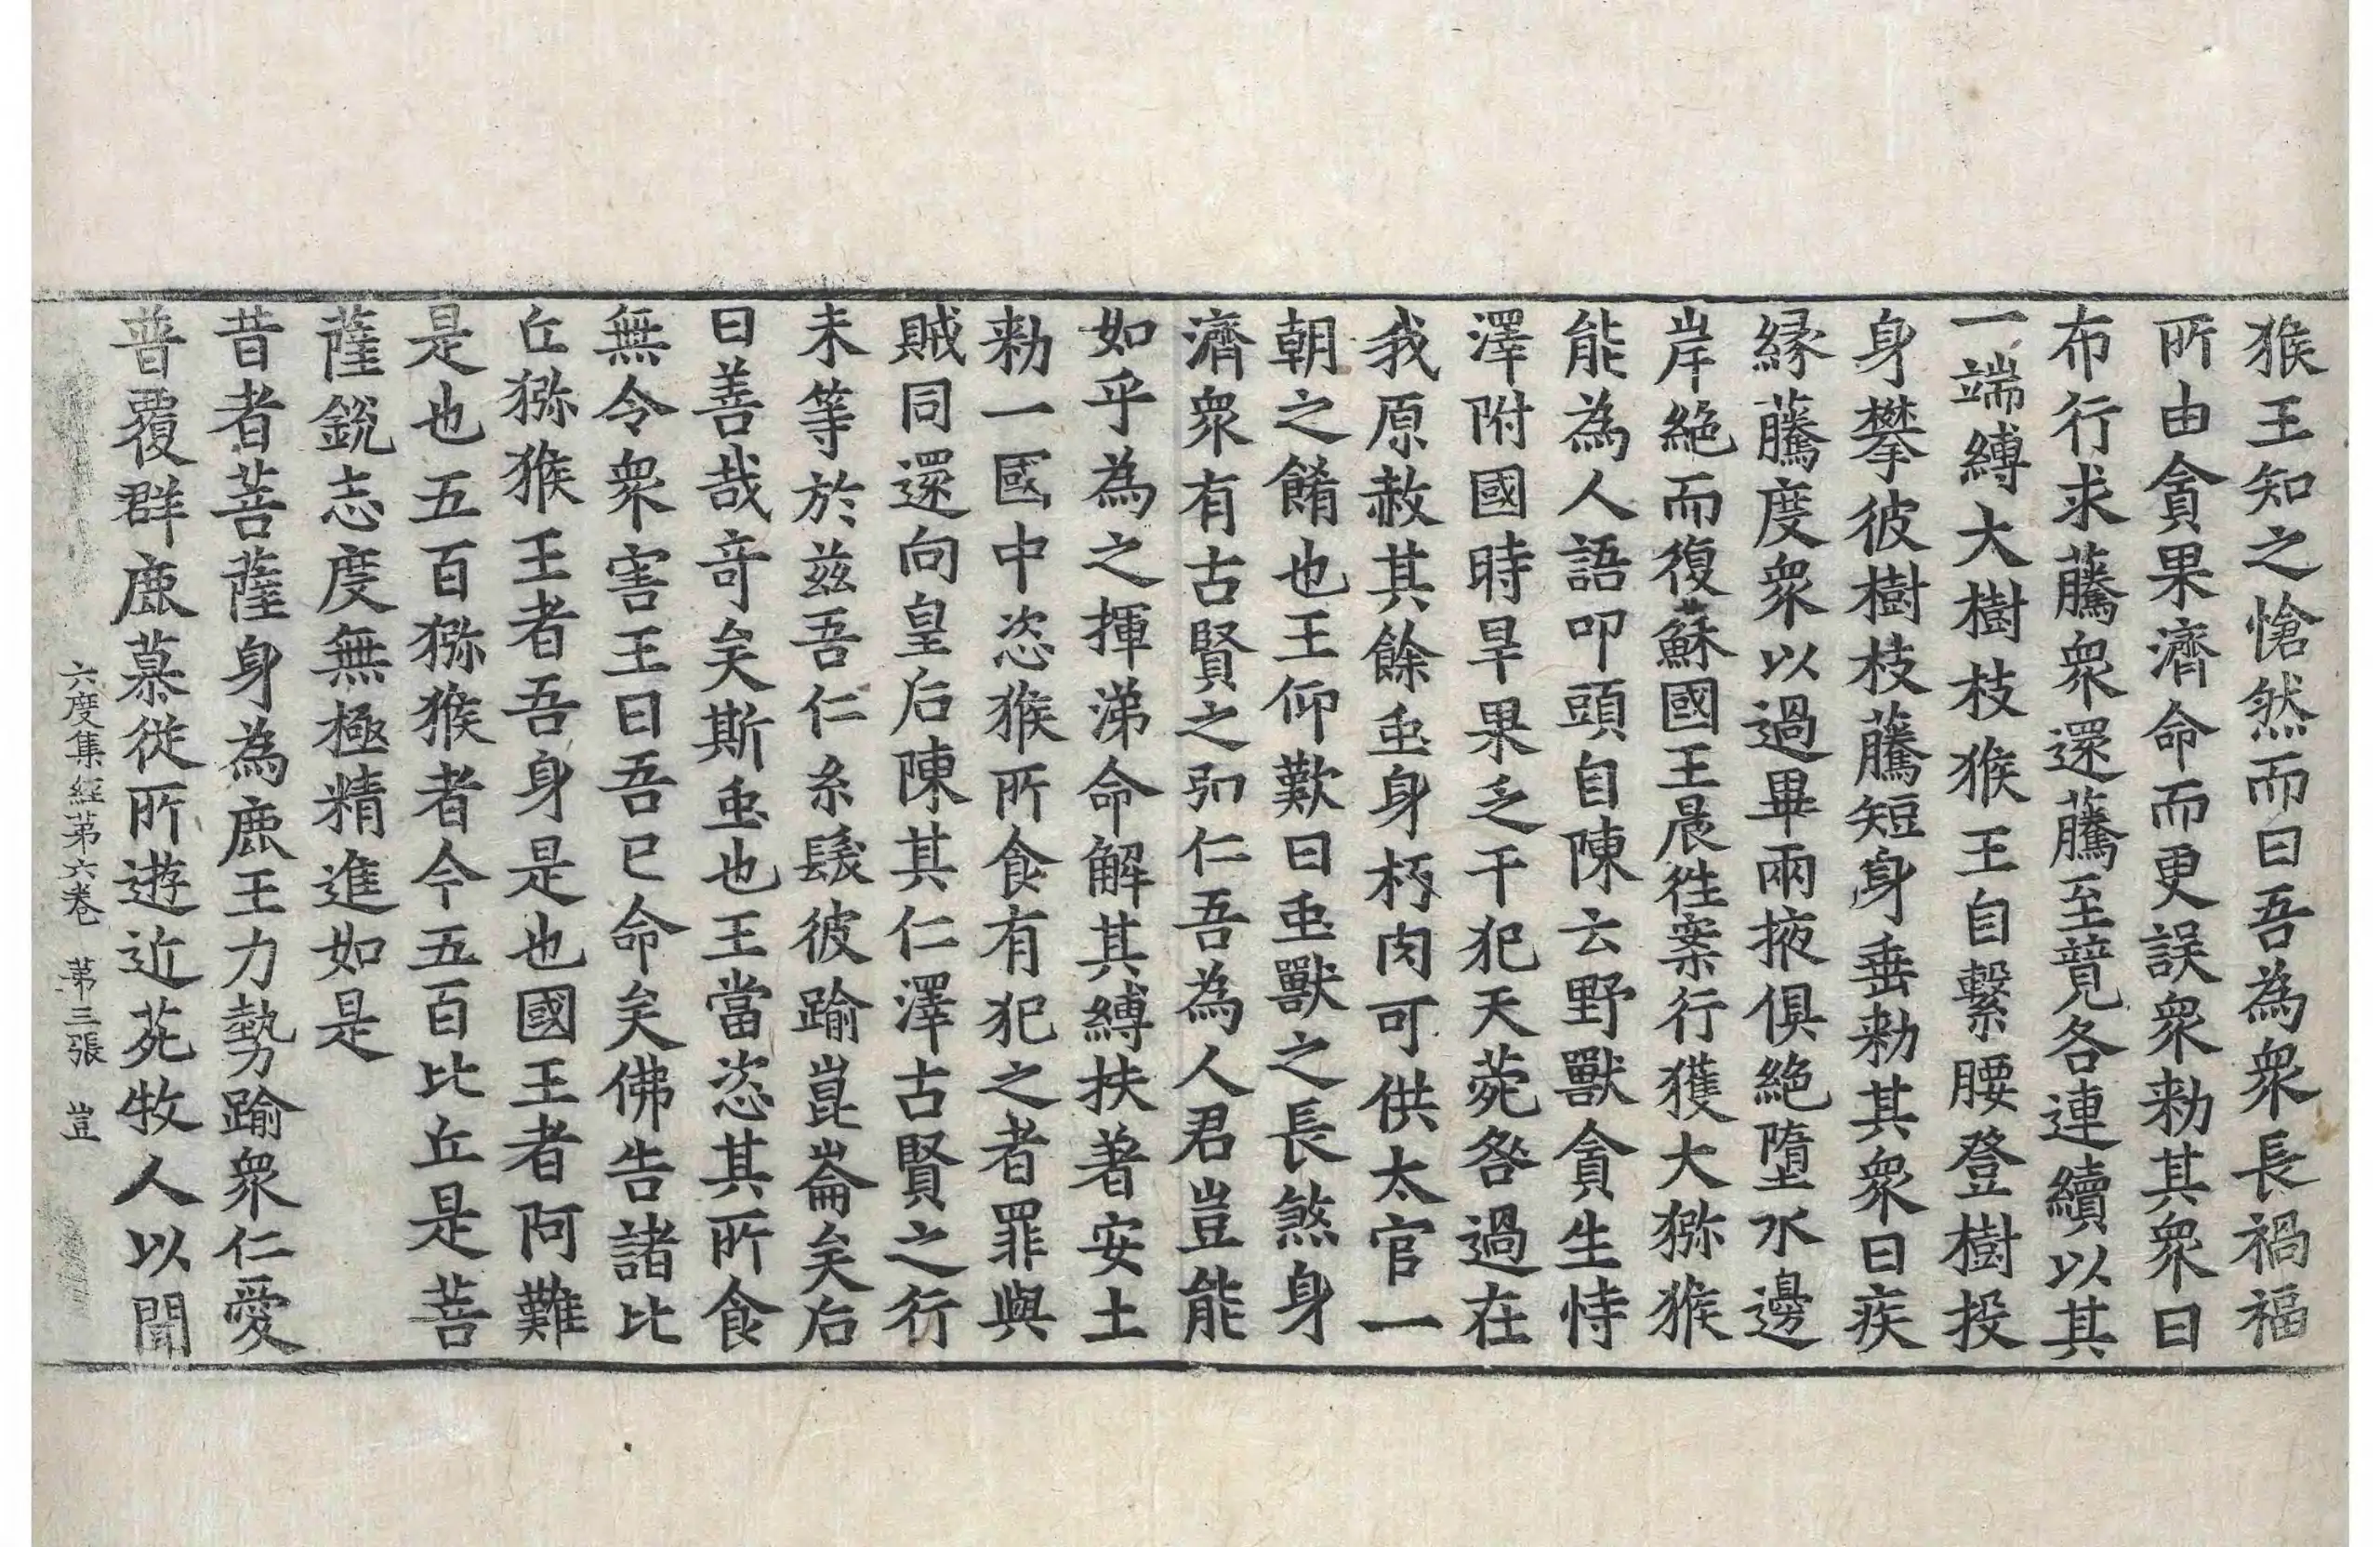 猴王知之愴然而曰吾為衆長禍福
所由貪果濟命而更誤衆勑其衆曰
布行求藤衆還藤至競各連續以其
一端縛大樹枝猴王自繫腰登樹投
身攀彼樹枝藤短身垂勑其衆曰疾
緣藤度衆以過畢兩掖俱絕墮水邊
岸絕而復蘇國王晨徃案行獲大獼猴
能為人語叩頭自陳云野獸貪生恃
澤附國時旱果乏干犯天苑咎過在
我原赦其餘䖝身朽肉可供太官一
朝之餚也王仰歎曰䖝獸之長煞身
濟衆有古賢之弘仁吾為人君豈能
如乎為之揮涕命解其縛扶著安土
勑一國中恣猴所食有犯之者罪與
賊同還向皇后陳其仁澤古賢之行
未等於兹吾仁糸髮彼踰崑崙矣后
曰善哉奇矣斯䖝也王當恣其所食
無令衆害王曰吾已命矣佛告諸比
丘獼猴王者吾身是也國王者阿難
是也五百獼猴者今五百比丘是菩
薩銳志度無極精進如是
昔者菩薩身為鹿王力勢踰衆仁愛
普覆群鹿慕從所遊近苑牧人以聞
六度集經第六卷 第三張 豈